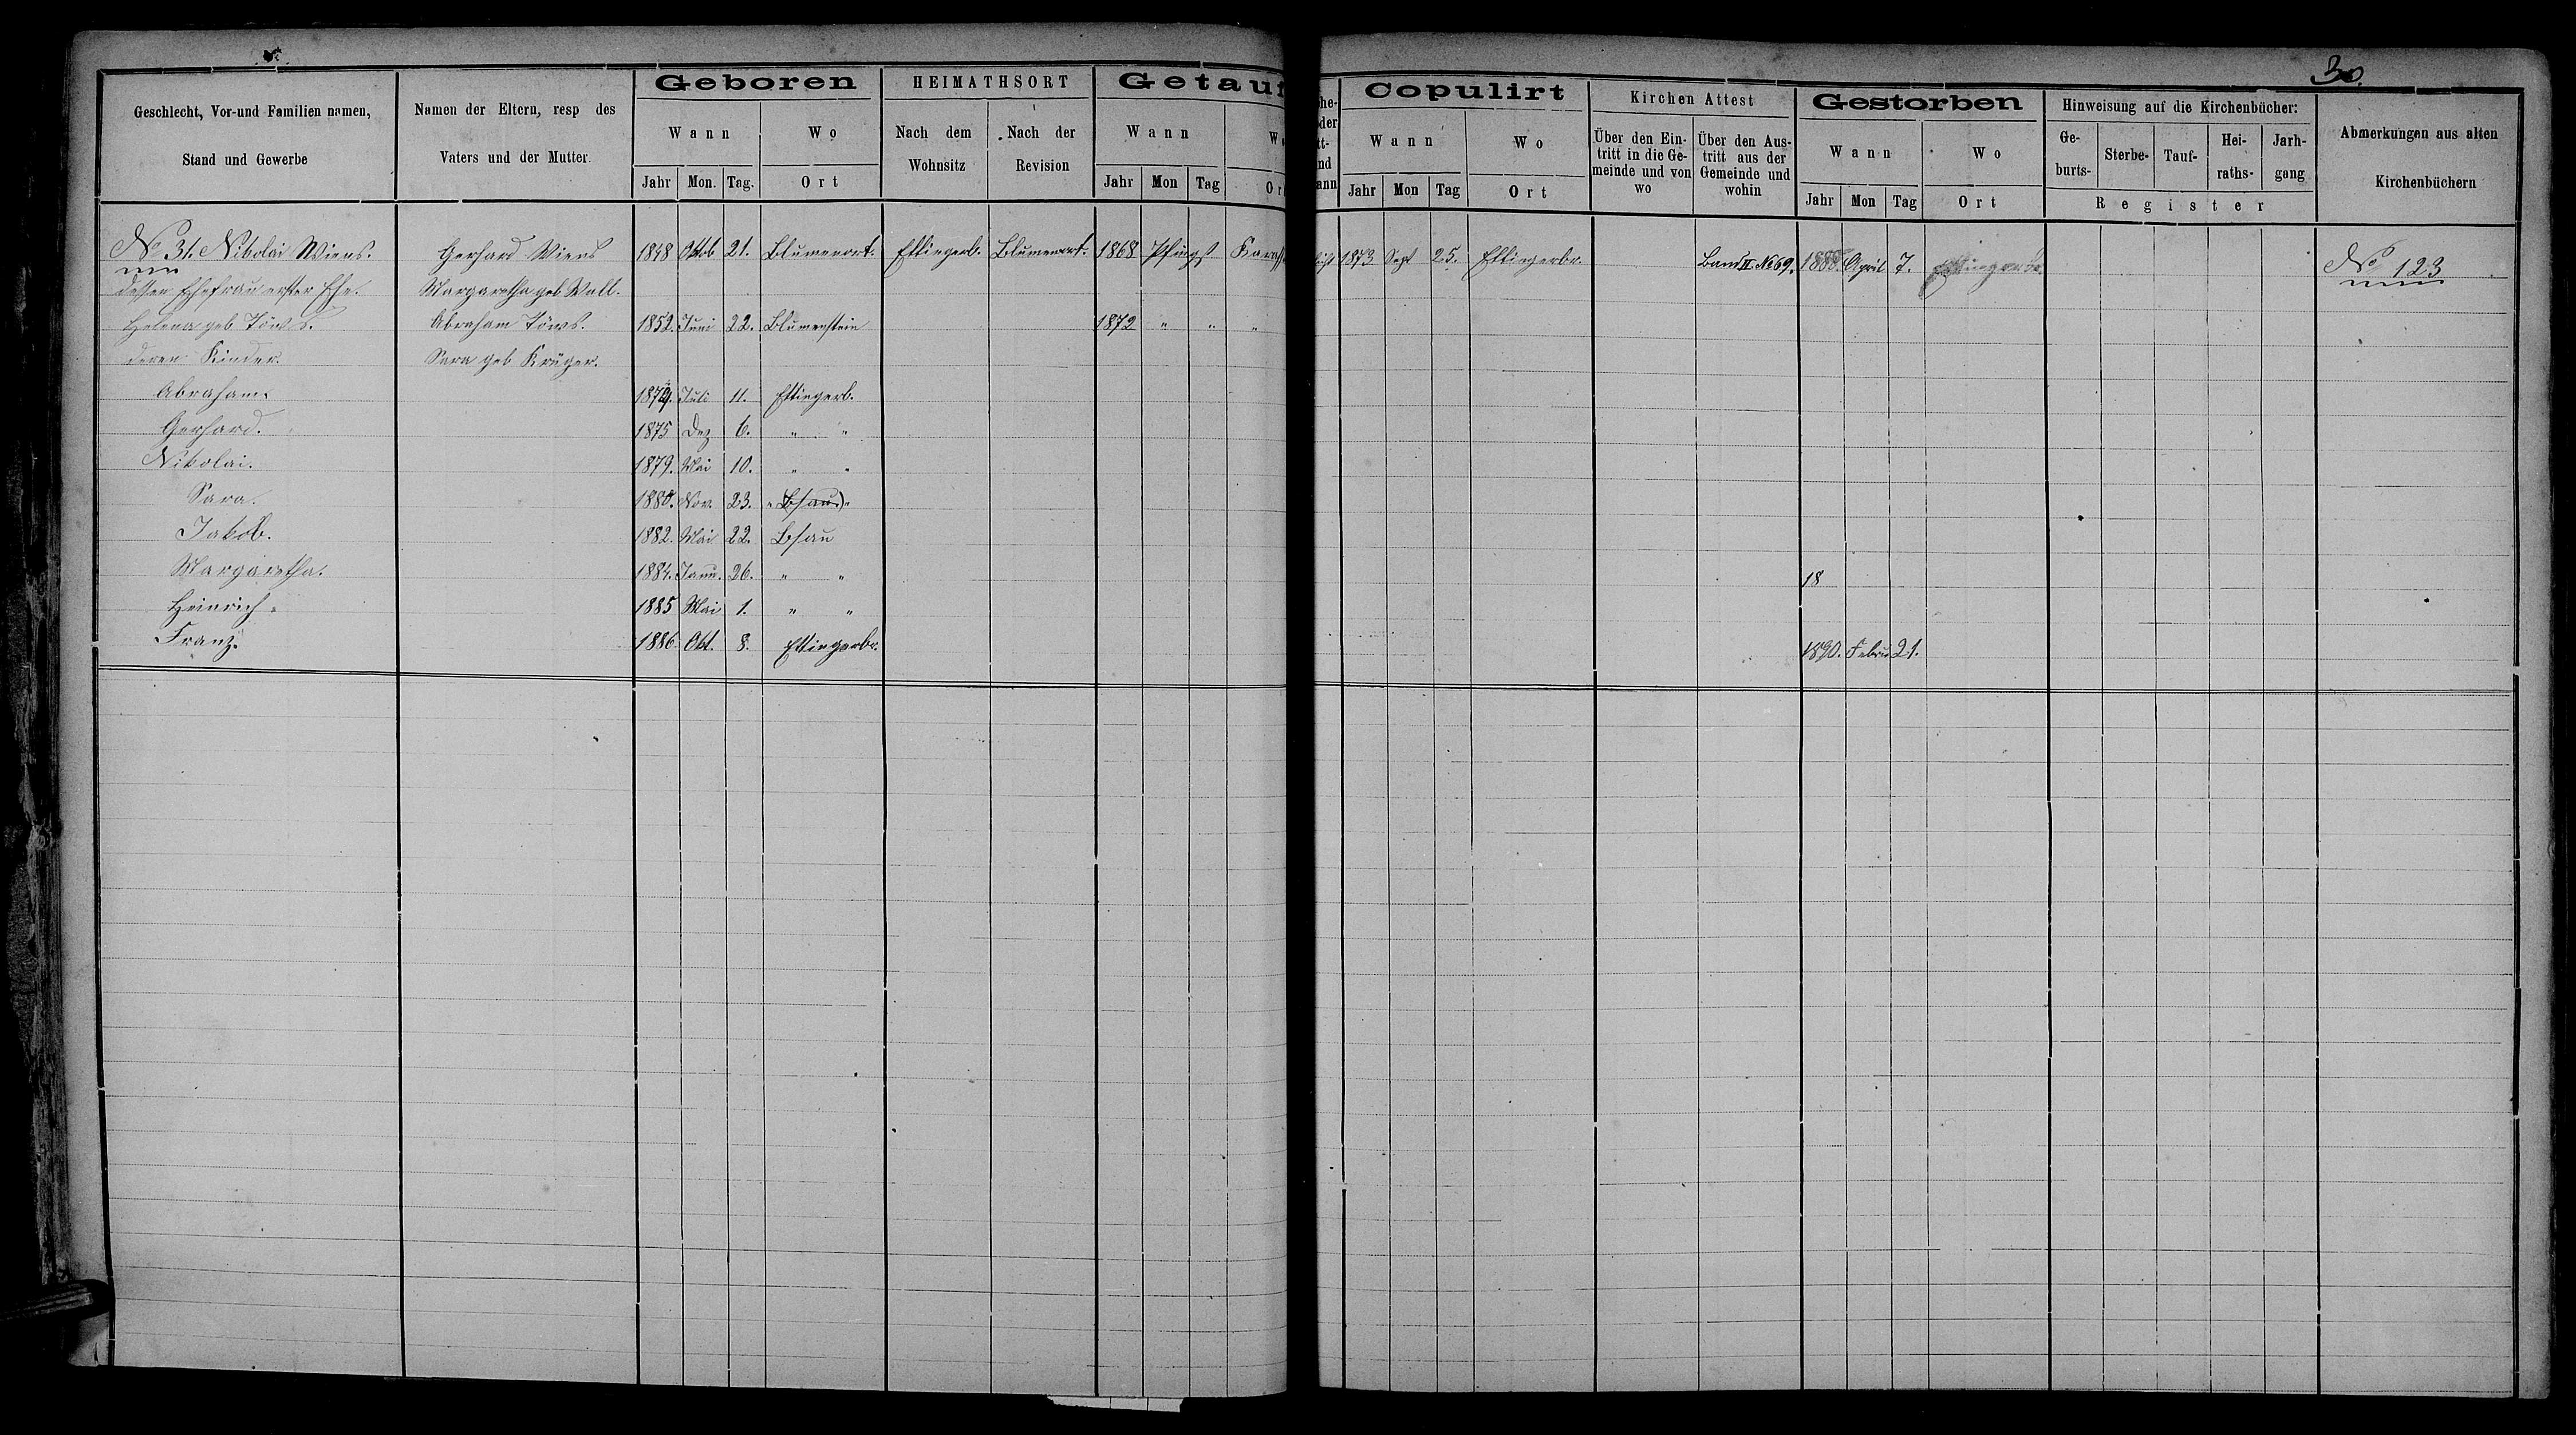 30.
Geschlecht, Vor-und Familien namen, Stand und Gewerbe
Namen der Eltern, resp des Vaters und der Mutter.
Geboren
Wann
Wo
Jahr Mon. Tag. Ort
HEIMATHSORT
Nach dem Wohnsitz
Nach der Revision
Getauf
Wann
W
Jahr Mon Tag Or
he-
der
tt-
nd
ann
Copulirt
Wann
Wo
Jahr Mon Tag Ort
Kirchen Attest
Über den Ein-tritt in die Ge-meinde und von wo
Über den Aus-tritt aus der Gemeinde und wohin
Gestorben
Wann
Wo
Jahr Mon Tag Ort
Hinweisung auf die Kirchenbücher:
Ge-burts- Sterbe- Tauf- Hei-raths- Jarh-gang
Register
Abmerkungen aus alten Kirchenbüchern
No 31. Nikolai Wiens. Gerhard Wiens 1848 Oktob 21. Blumenort. Ettingerb. Blumenort. 1868 Pfingst 1873 Sept 25. Ettingerbr. Band II No 69. 1888. April 7. No 123
dessen Ehefrau erster Ehe. Margaretha geb Wall.
Helena geb Töws. Abraham Töws. 1852. Juni 22. Blumenstein 1872 " " "
deren Kinder. Sara geb Krüger.
Abraham. 1874. Juli 11. Ettingerb.
Gerhard. 1875 Dez 6. " "
Nikolai. 1879. Mai 10. " "
Sara. 1880. Nov. 23. " "
Jakob. 1882. Mai 22. Bshau
Margaretha. 1884. Janu. 26. " " 18
Heinrich. 1885 Mai 1. " "
Franz. 1886. Okt. 8. Ettingerbr. 1890. Febru 21.